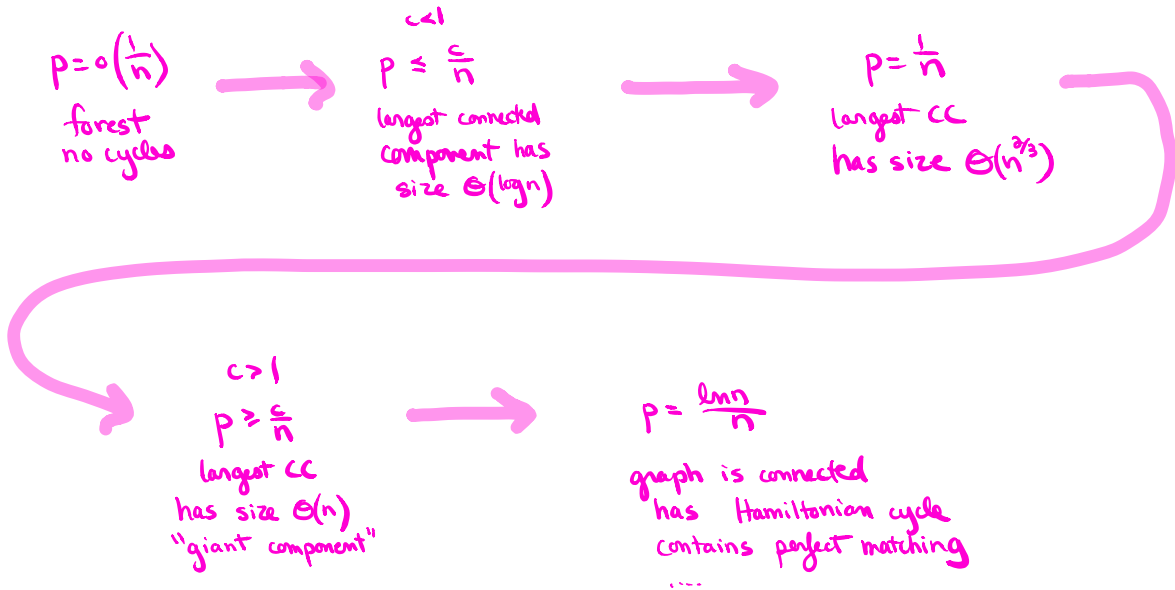 p = o(1/n)
forest
no cycles
c<1
p ≤ c/n
largest connected
component has
size Θ(log n)
p = 1/n
largest CC
has size Θ(n^2/3)
c>1
p ≥ c/n
largest CC
has size Θ(n)
"giant component"
p = ln n/n
graph is connected
has Hamiltonian cycle
contains perfect matching
....